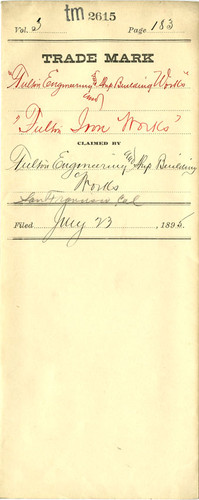 tm 2615
Vol. 3 Page 183
TRADE MARK
"Fulton Engineering and Ship Building Works"
and
"Fulton Iron Works"
CLAIMED BY
Fulton Engineering and Ship Building
Works
San Francisco Cal
Filed July 23, 1895.